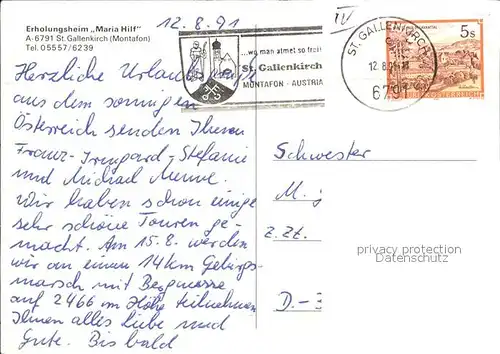 Erholungsheim „Maria Hilf"
A-6791 St. Gallenkirch (Montafon)
Tel. 05557/6239
12.8.91
IV
...wo man atmet so frei!
St. Gallenkirch
MONTAFON - AUSTRIA
ST. GALLENKIRCH
12.8.91
6791
5s
REPUBLIK ÖSTERREICH
Herzliche Urlaubsgrüße
aus dem sonnigen
Österreich senden Ihnen
Franz - Irmgard - Stefanie
und Michael
Wir haben schon einige
sehr schöne Touren ge-
macht. Am 15.8. werden
wir an einem 14km Gebirgs-
marsch mit Bergmesse
auf 2466 m Höhe teilnehmen
Ihnen alles Liebe und
Gute. Bis bald
Schwester
M.
z.Zt.
D.-
privacy protection
Datenschutz